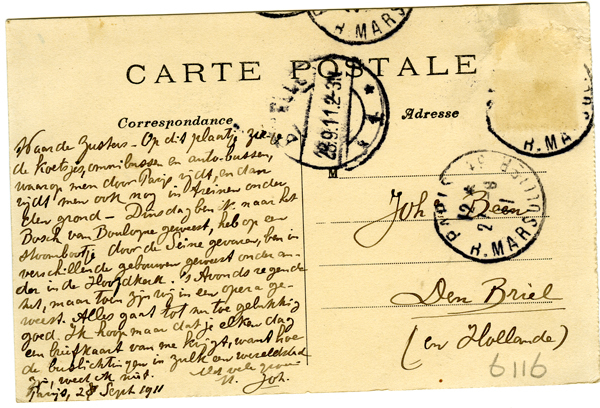 CARTE POSTALE
Correspondance
Adresse
Waarde Zusters – Op dit plaatje zie
de koetsjes, omnibussen en auto-bussen,
waarop men door Parijs rijdt, en dan
rijdt men ook nog in treinen onder
den grond – Dinsdag ben ik naar het
Bosch van Boulogne geweest, heb op een
stoombootje door de Seine gevaren, ben in
verschillende gebouwen geweest onder an-
der in de Hoofdkerk. 's Avonds regende
het, maar toen zijn wij in een opera ge-
weest. Alles gaat tot nu toe gelukkig
goed. Ik hoop maar dat je elken dag
een briefkaart van me krijgt, want hoe
de buslichtingen in zulk een wereldstad
zijn, weet ik niet.
Met vele groeten
Parijs, 28 Sept 1911
Joh.
M
Joh Been
Den Briel
(en Hollande)
6116
28.9.11.2-3N
PARIS
R. MARSOULIER
12
R. MARS
R. MA